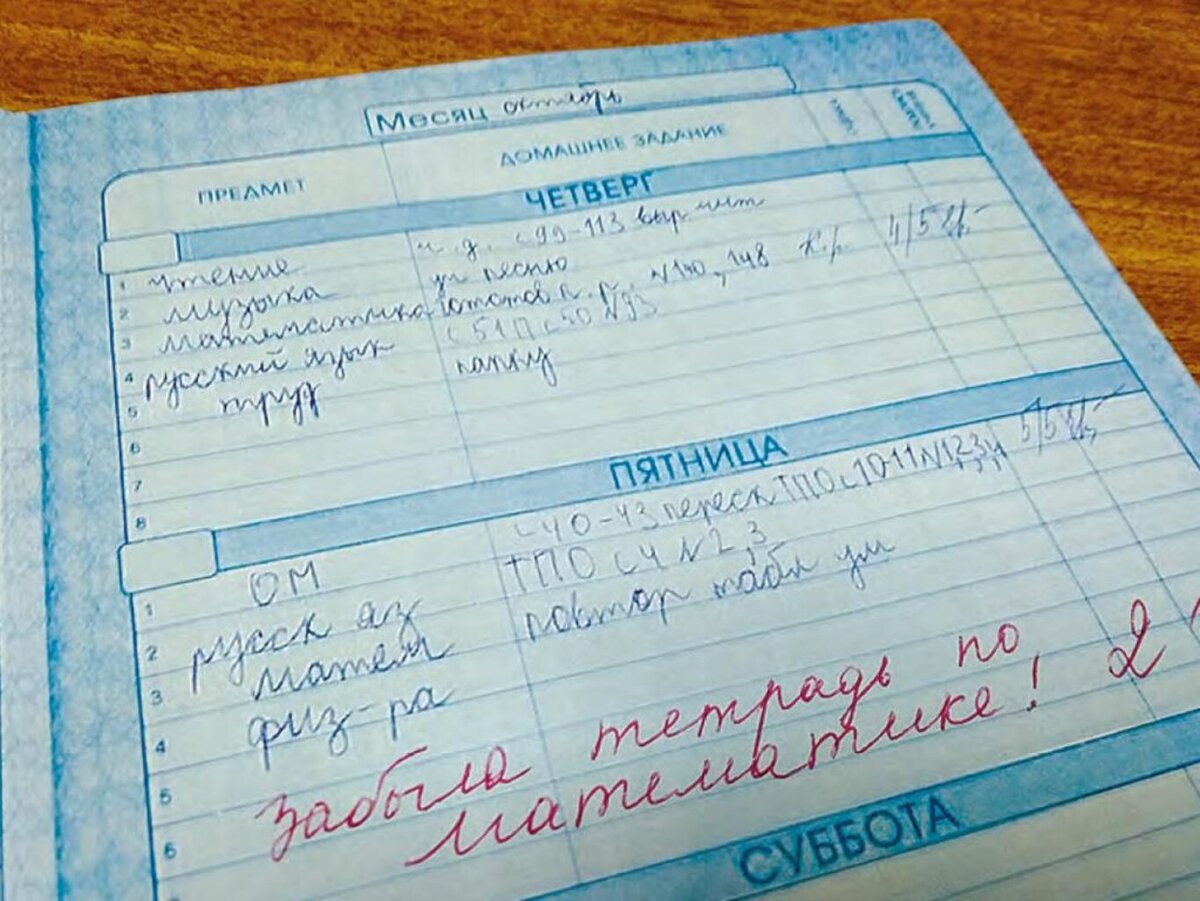 Месяц октябрь
ПРЕДМЕТ ДОМАШНЕЕ ЗАДАНИЕ
ЧЕТВЕРГ
1 чтение ч. д. с 99-113 выр чит
2 музыка уч песню
3 математика Готов к к. р. N 140, 148 К.р. 4/5
4 русский язык с 51 П с 50 N 93
5 труд папку
6
7
8
ПЯТНИЦА
1 ОМ с 40-43 переск ТПО с 10-11 N 1,2,3,4 5/5
2 русск яз ТПО с 4 N 2,3
3 матем повтор табл ум
4 физ-ра
5 забыла тетрадь по
6 математике! 2
СУББОТА